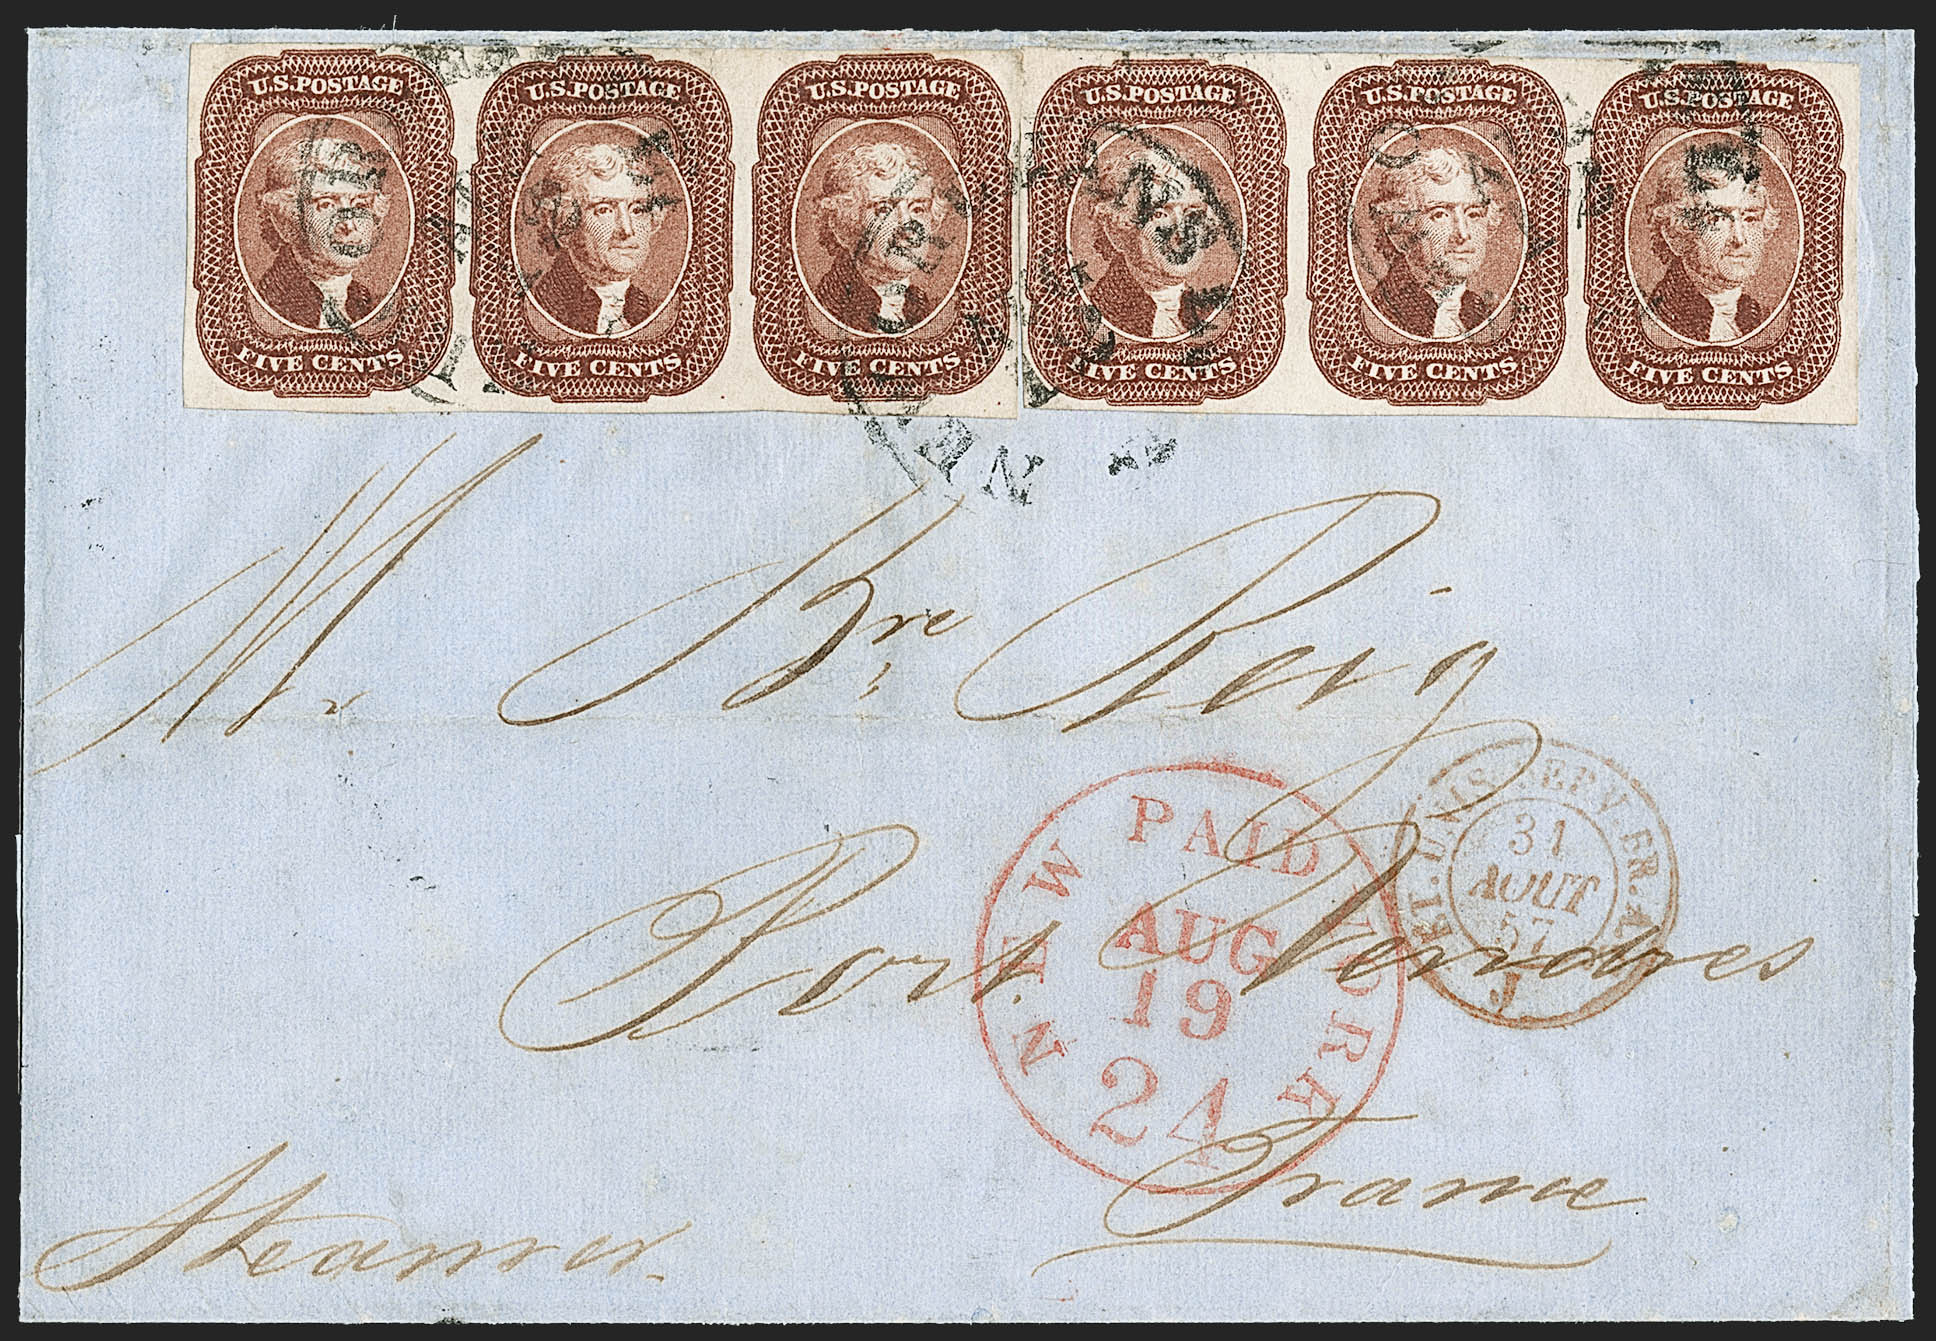 U.S. POSTAGE U.S. POSTAGE U.S. POSTAGE U.S. POSTAGE U.S. POSTAGE U.S. POSTAGE
FIVE CENTS FIVE CENTS FIVE CENTS FIVE CENTS FIVE CENTS FIVE CENTS
Mr Bre Reig
NEW PAID YORK
AUG
19
24
ET. UNIS SERV. BR. A
31
AOUT
57
J
Port Vendres
France
Steamer